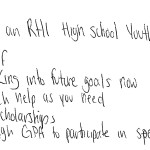 an RTII High school Youth
f
king into future goals now
ch help as you need
scholarships
igh GPA to participate in spe